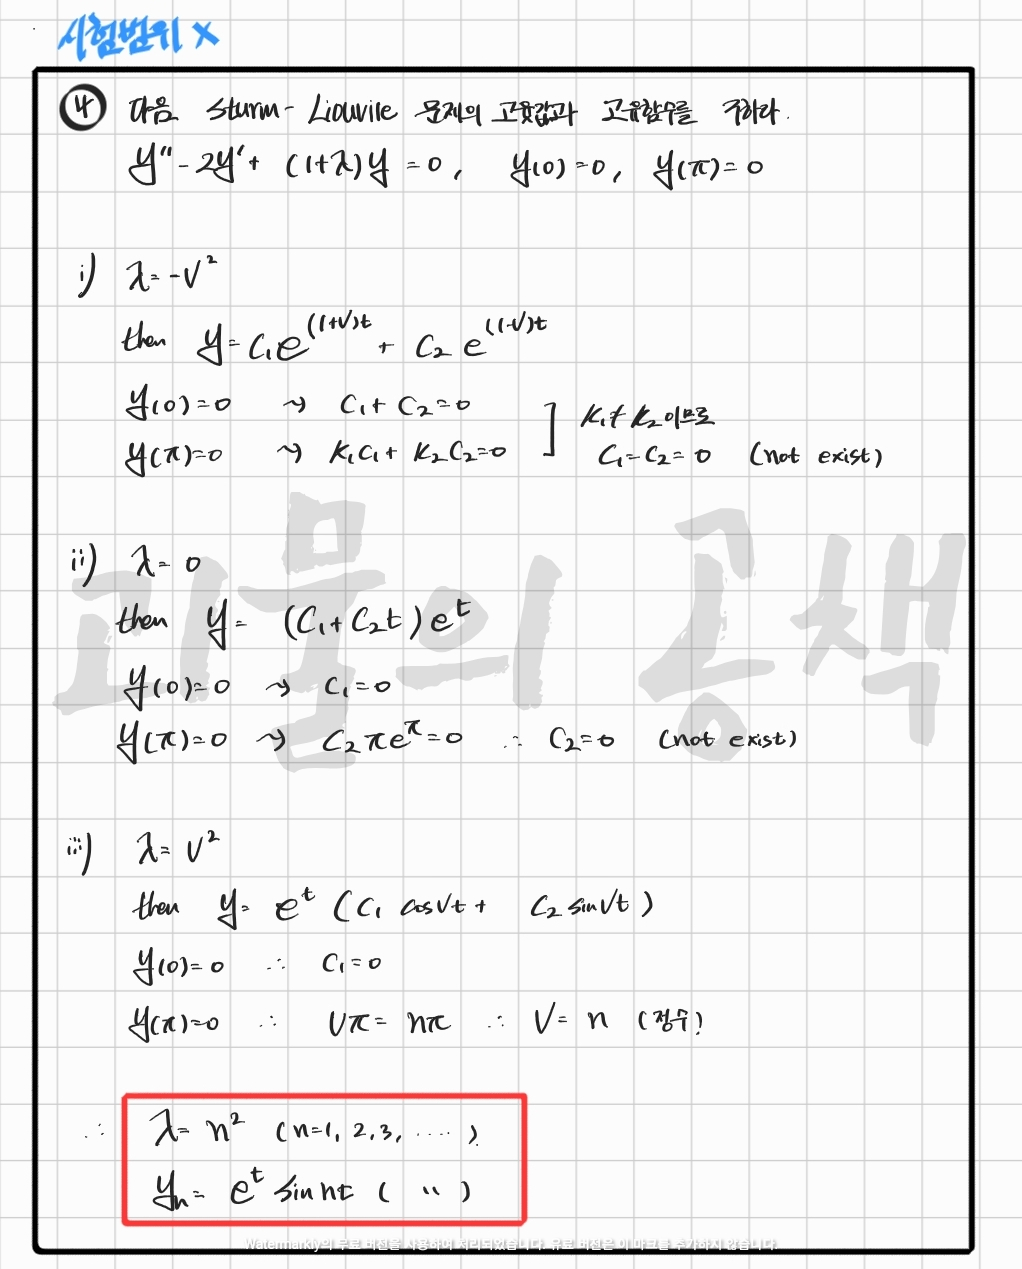 시험범위 X
④ 다음 Sturm-Liouvile 문제의 고윳값과 고유함수를 구하라.
y'' - 2y' + (1+λ)y = 0, y(0)=0, y(π)=0
i) λ = -ν²
then y = C₁e^{(1+ν)t} + C₂e^{(1-ν)t}
y(0)=0 ⤳ C₁+C₂=0
y(π)=0 ⤳ K₁C₁+K₂C₂=0
] K₁≠K₂이므로
C₁=C₂=0 (not exist)
ii) λ = 0
then y = (C₁+C₂t)e^t
y(0)=0 ⤳ C₁=0
y(π)=0 ⤳ C₂πe^π=0 ∴ C₂=0 (not exist)
iii) λ = ν²
then y = e^t (C₁ cosνt + C₂ sinνt)
y(0)=0 ∴ C₁=0
y(π)=0 ∴ νπ = nπ ∴ ν = n (정수)
∴ λ = n² (n=1, 2, 3, ....)
yₙ = e^t sin nt ( 〃 )
괴물의 공책
Watermarkly의 무료 버전을 사용하여 처리되었습니다. 유료 버전은 이 마크를 추가하지 않습니다.